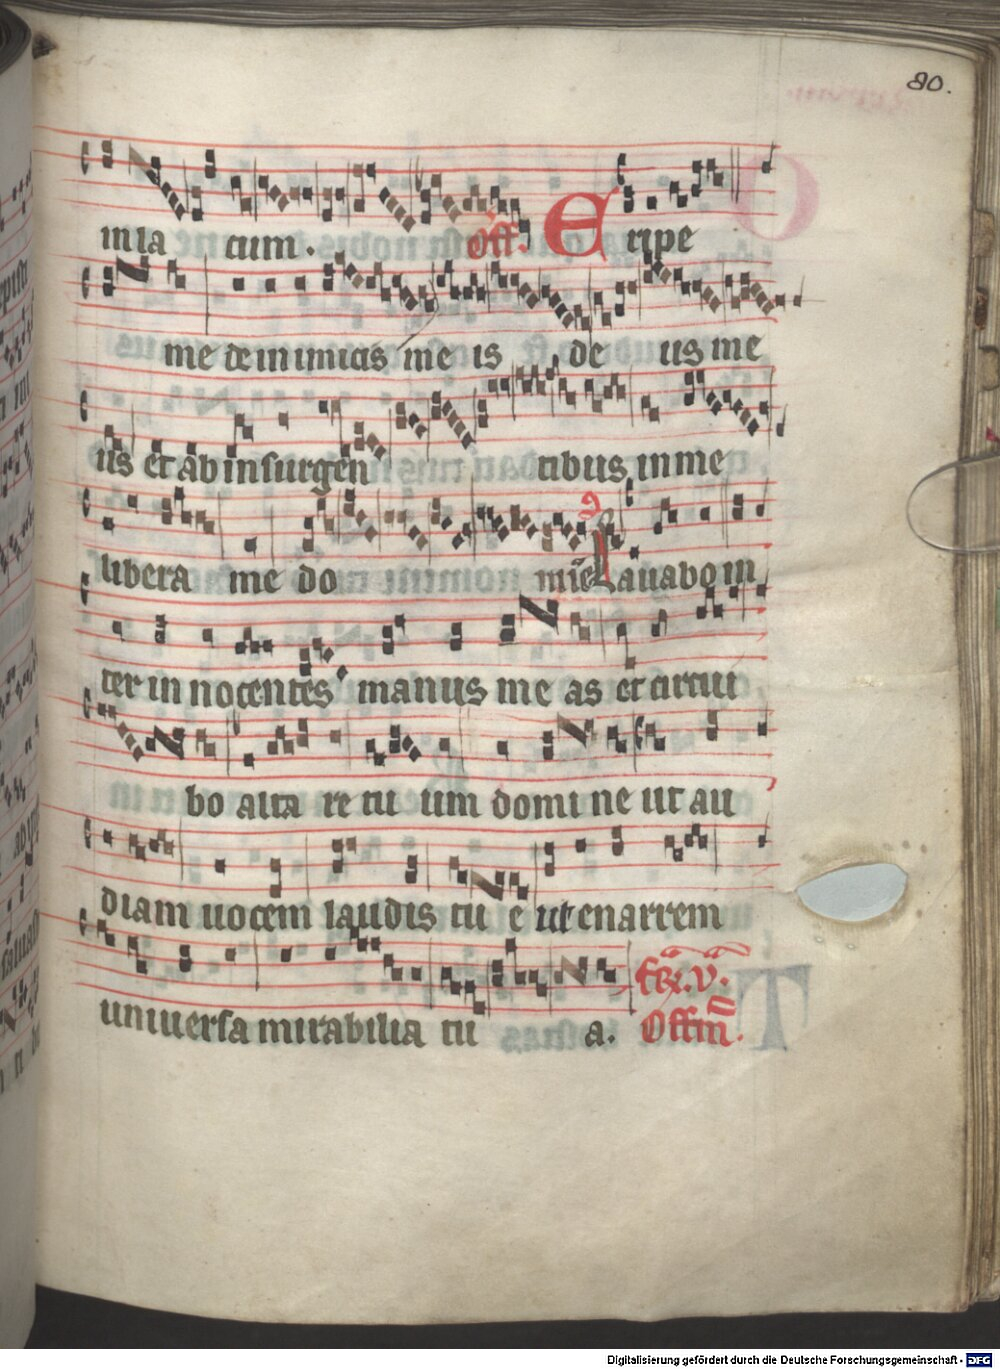 80.
in la cum. Off. Eripe
me de inimicis me is de us me
us et ab insurgen tibus in me
libera me do mīe Lauabo in
ter in nocentes manus me as et circui
bo alta re tu um domi ne ut au
diam uocem laudis tu e ut enarrem
uniuersa mirabilia tu a.
Offm̄.
Digitalisierung gefördert durch die Deutsche Forschungsgemeinschaft - DFG